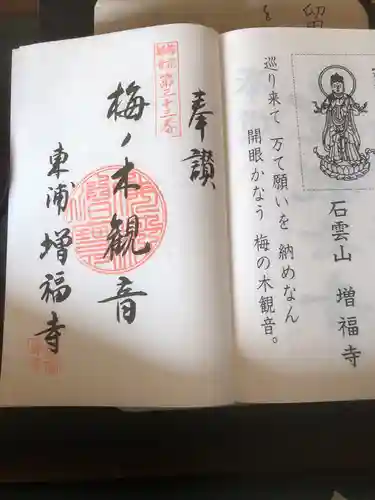 石雲山 増福寺
巡り来て 万て願いを 納めなん
開眼かなう 梅の木観音。
奉讃
第三十三番
梅ノ木観音
東浦 増福寺